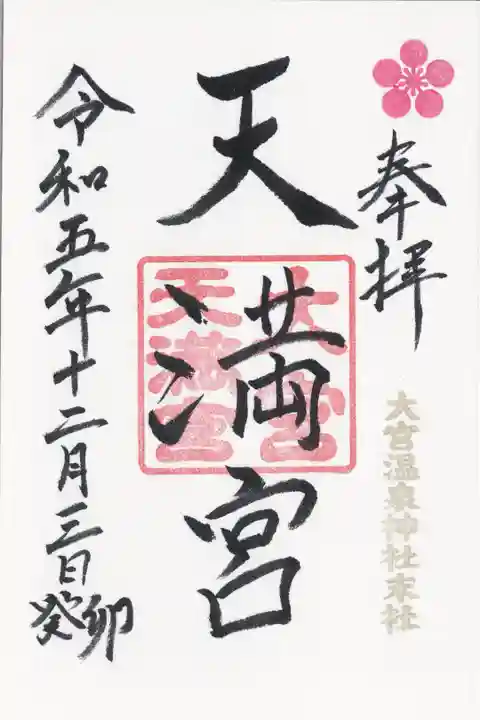 奉拝
大宮温泉神社末社
天満宮
大宮
天満宮
令和五年十二月三日
癸卯